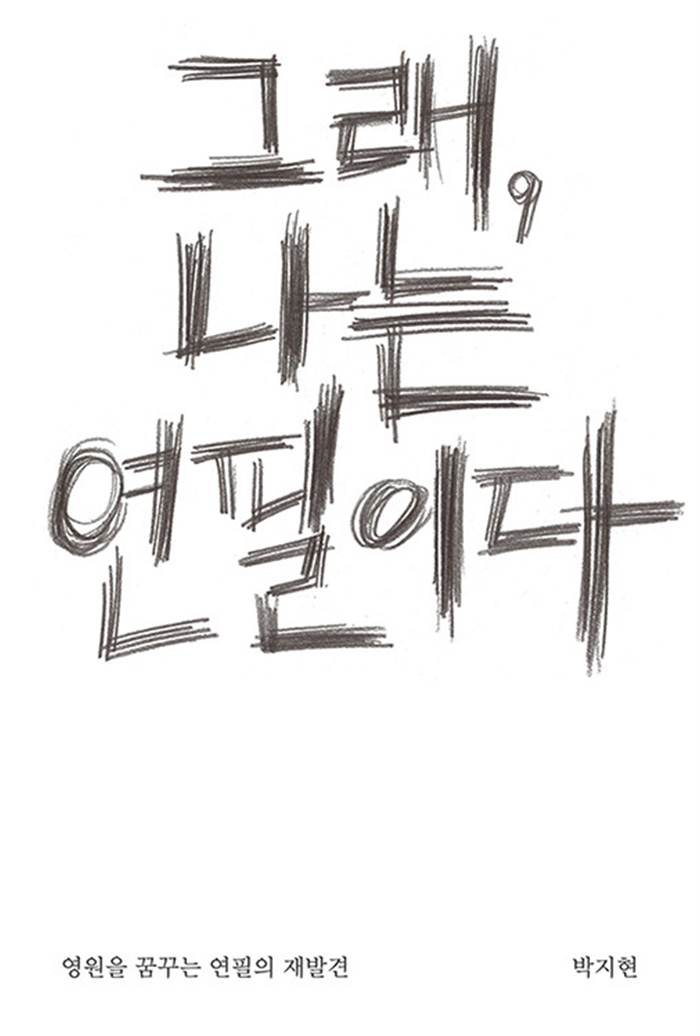 그래,
나는
연필이다
영원을 꿈꾸는 연필의 재발견
박지현